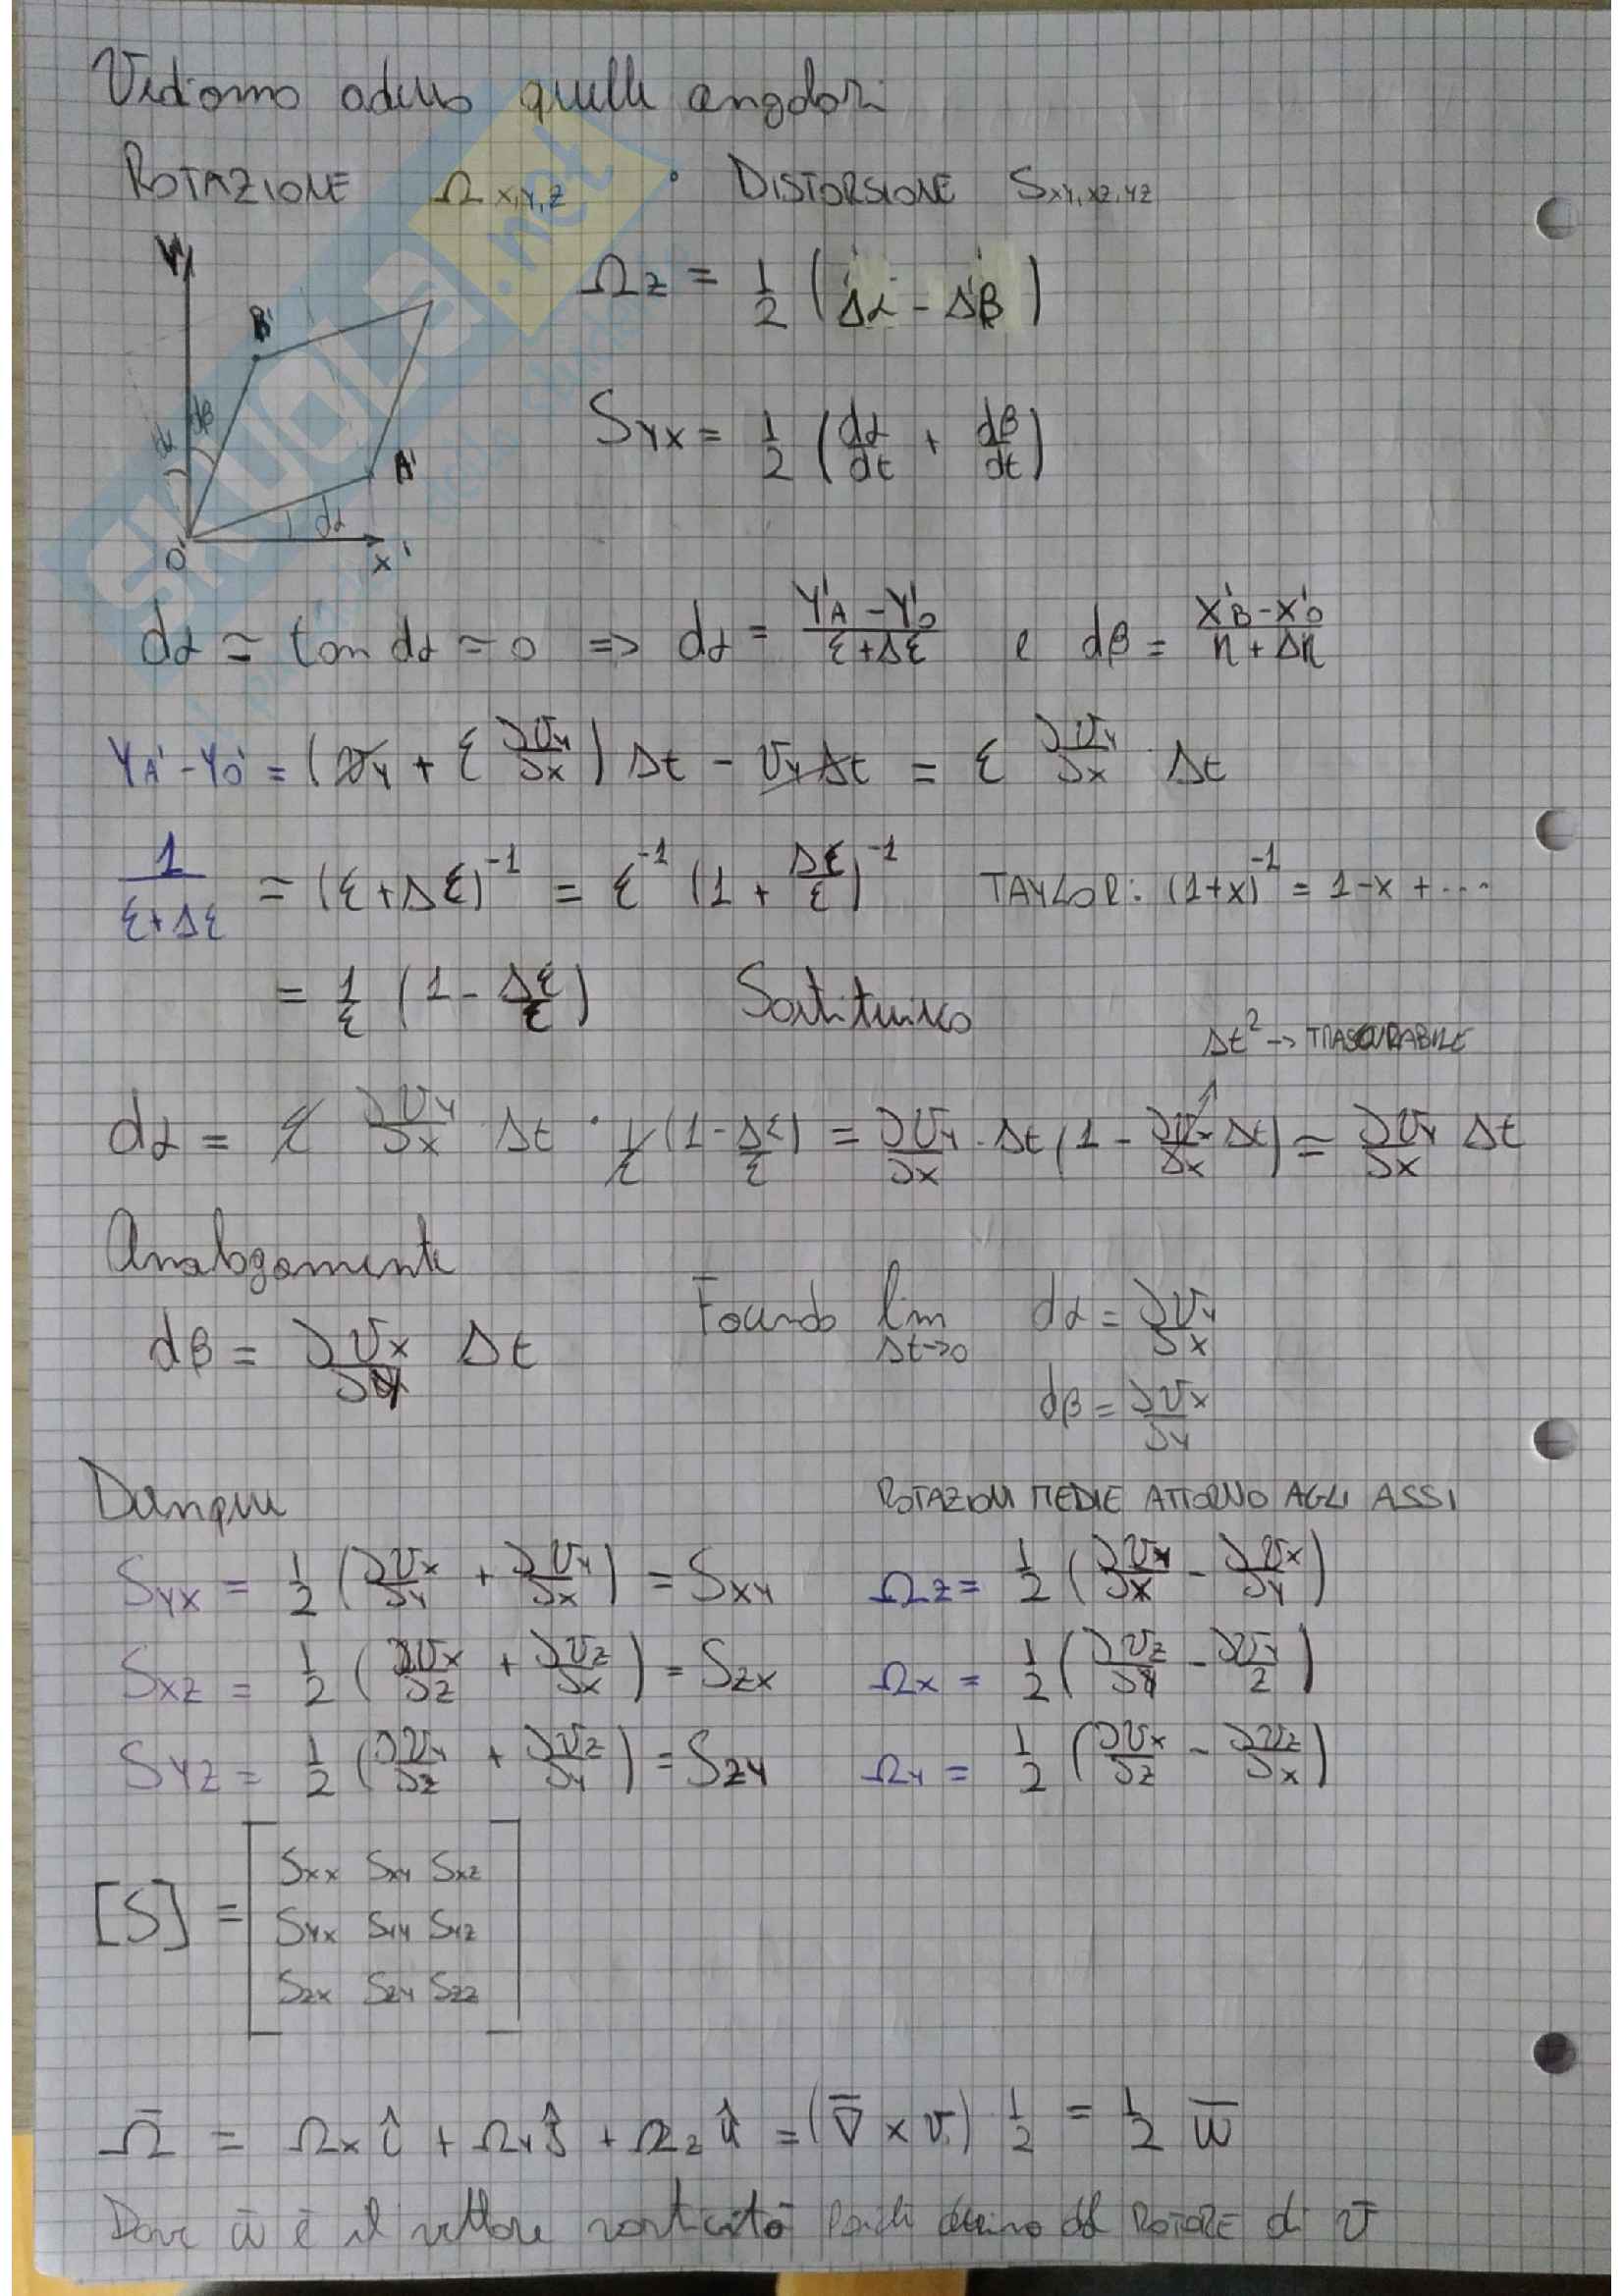 Vediamo adesso quelle angolari
ROTAZIONE Ω x,y,z • DISTORSIONE S xy,xz,yz
Ωz = 1/2 (Δ̇α - Δ̇β)
Syx = 1/2 (dα/dt + dβ/dt)
Y'
B'
dα dβ
A'
dα
O' x'
dα ≃ tan dα ≃ 0 => dα = (Y'A - Y'O)/(ξ+Δξ) e dβ = (X'B - X'O)/(η+Δη)
YA' - YO' = (vy + ξ ∂vy/∂x) Δt - vy Δt = ξ ∂vy/∂x Δt
1/(ξ+Δξ) = (ξ+Δξ)^-1 = ξ^-1 (1 + Δξ/ξ)^-1 TAYLOR: (1+x)^-1 = 1-x + ...
= 1/ξ (1 - Δξ/ξ) Sostituisco
Δt² -> TRASCURABILE
dα = ξ ∂vy/∂x Δt · 1/ξ (1 - Δξ/ξ) = ∂vy/∂x · Δt (1 - ∂vx/∂x Δt) ≃ ∂vy/∂x Δt
Analogamente
dβ = ∂vx/∂y Δt
Facendo lim Δt->0 dα = ∂vy/∂x
dβ = ∂vx/∂y
Dunque ROTAZIONI MEDIE ATTORNO AGLI ASSI
Syx = 1/2 (∂vx/∂y + ∂vy/∂x) = Sxy Ωz = 1/2 (∂vy/∂x - ∂vx/∂y)
Sxz = 1/2 (∂vx/∂z + ∂vz/∂x) = Szx Ωx = 1/2 (∂vz/∂y - ∂vy/z)
Syz = 1/2 (∂vy/∂z + ∂vz/∂y) = Szy Ωy = 1/2 (∂vx/∂z - ∂vz/∂x)
[S] = [ Sxx Sxy Sxz
Syx Syy Syz
Szx Szy Szz ]
Ω̄ = Ωx î + Ωy ĵ + Ωz k̂ = (∇̄ × v) 1/2 = 1/2 w̄
Dove w̄ è il vettore vorticità del ROTORE di v̄
SKUOLA.net